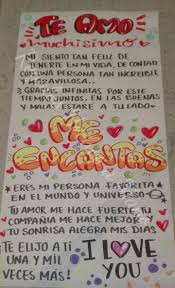 TE AMO
muchisimo
ME SIENTO TAN FELIZ DE
TENERTE EN MI VIDA, DE CONTAR
CON UNA PERSONA TAN INCREIBLE
Y MARAVILLOSA..
GRACIAS INFINITAS POR ESTE
TIEMPO JUNTOS, EN LAS BUENAS
Y MALAS ESTARE A TU LADO
ME
ENCANTAS
ERES MI PERSONA FAVORITA
EN EL MUNDO Y UNIVERSO
TU AMOR ME HACE FUERTE, TU
COMPAÑIA ME HACE MEJOR Y
TU SONRISA ALEGRA MIS DIAS
TE ELIJO A TI
UNA Y MIL
VECES MÁS!
I LOVE
YOU